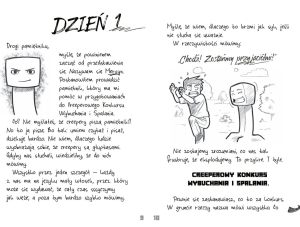 DZIEŃ 1
Drogi pamiętniku,
myślę, że powinienem
zacząć od przedstawienia
się. Nazywam się
Postanowiłem prowadzić
pamiętnik, który ma mi
pomóc w przygotowaniach
do Creeperowego Konkursu
Wybuchania i Spalania.
Co? Nie myślałeś, że creepery piszą pamiętniki?
No to ja piszę. Bo tak: umiem czytać i pisać,
i bardzo. Nie wiem, dlaczego ludzie
wyobrażają sobie, że creepery są głupiasami.
Gdyby nas słuchali, wiedzieliby, że do nich
mówimy.
Wszystko przez jeden szczegół — każdy
z nas ma na języku mały włosek, przez który
może się wydawać, że cały czas syczymy
jak węże, a poza tym bardzo szybko mówimy.
Myślę, że wiem, dlaczego to brzmi jak syk, jeśli
nie słucha się uważnie.
W rzeczywistości mówimy:
„Chodź! Zostańmy przyjaciółmi!”
Nie zostajemy zrozumiani, co nas tak
frustruje, że eksplodujemy. To przykre. I tyle.
CREEPEROWY KONKURS
WYBUCHANIA I SPALANIA.
Pewnie się zastanawiasz, co to za konkurs.
W gruncie rzeczy nazwa mówi wszystko. Co